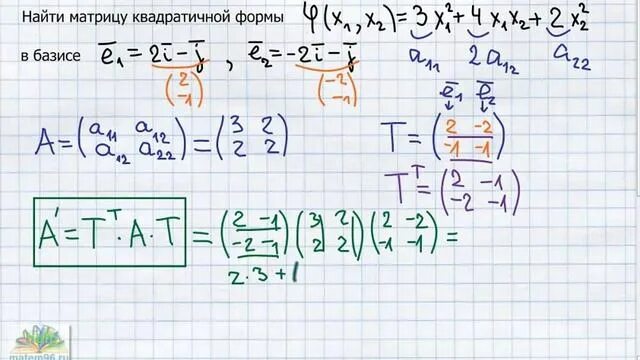 Найти матрицу квадратичной формы φ(x₁,x₂)=3x₁²+4x₁x₂+2x₂²
a₁₁ 2a₁₂ a₂₂
в базисе e̅₁=2i̅-j̅, e̅₂=-2i̅-j̅
(2 -1) (-2 -1)
e̅₁ e̅₂
A=(a₁₁ a₁₂ a₁₂ a₂₂)=(3 2 2 2) T=(2 -2 -1 -1)
Tᵀ=(2 -1 -2 -1)
A'=Tᵀ·A·T =(2 -1 -2 -1)(3 2 2 2)(2 -2 -1 -1)=
2·3+(
matem96.ru